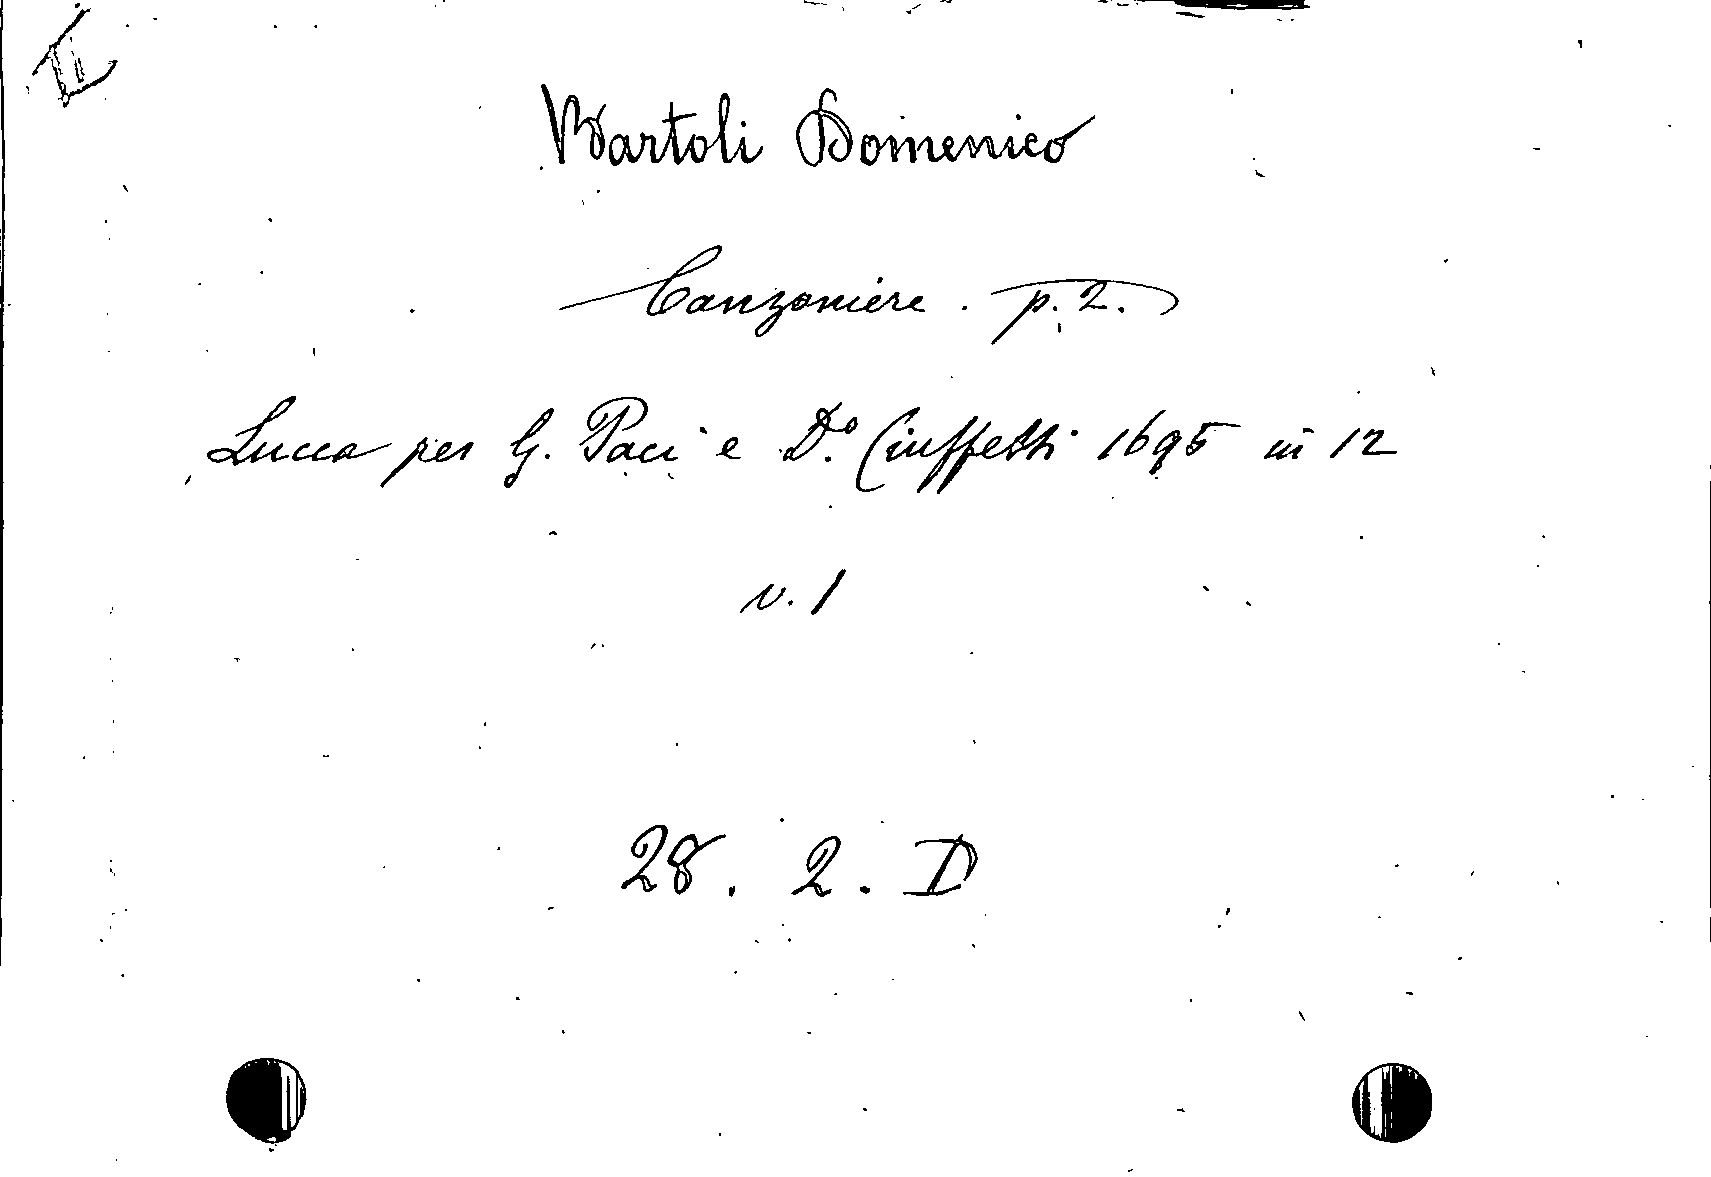 II
Bartoli Domenico
Canzoniere. p. 2.
Lucca per G. Paci e D.º Ciuffetti 1695 in 12
v. 1
28. 2. D